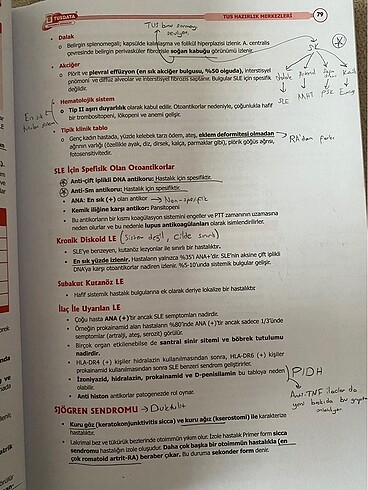 TUSDATA
TUS HAZIRLIK MERKEZLERİ
79
TUS bunu sormayı seviyor.
• Dalak
o Belirgin splenomegali; kapsülde kalınlaşma ve folikül hiperplazisi izlenir. A. centralis
çevresinde belirgin perivasküler fibrozisle soğan kabuğu görünümü izlenir.
SK
SLE
MHT
PSK
• Akciğer
o Plörit ve plevral effüzyon (en sık akciğer bulgusu, %50 olguda), interstisyel
pnömoni ve diffüz alveolar ve interstisyel fibrozis saptanır. Bulgular SLE için spesifik
değildir.
En sık
• Hematolojik sistem
o Tip II aşırı duyarlılık olarak kabul edilir. Otoantikorlar nedeniyle, çoğunlukla hafif
bir trombositopeni, lökopeni ve anemi gelişir.
• Tipik klinik tablo
o Genç kadın hastada, yüzde kelebek tarzı ödem, ateş, eklem deformitesi olmadan
ağrının varlığı (özellikle ayak, diz, dirsek, kalça, parmaklar gibi), plörik göğüs ağrısı,
fotosensitivitedir.
RA'dan farkı
SLE İçin Spesifik Olan Otoantikorlar
Anti-çift iplikli DNA antikoru: Hastalık için spesifiktir.
Anti-Sm antikoru: Hastalık için spesifiktir.
• ANA: En sık (+) olan antikor → Non-spesifik
• Kemik iliğine karşı antikor: Pansitopeni
• Bu antikorların bir kısmı koagülasyon sistemini engeller ve PTT zamanının uzamasına
neden olurlar ve bu nedenle lupus antikoagulanları olarak isimlendirilirler.
Kronik Diskoid LE (Sistemik değil, cilde sınırlı)
• SLE'ye benzeyen, kutanöz lezyonlar ile sınırlı bir hastalıktır.
• En sık yüzde izlenir. Hastaların yalnızca %35'i ANA+'dir. SLE'nin aksine çift iplikli
DNA'ya karşı otoantikorlar nadiren izlenir. %5-10'unda sistemik bulgular gelişir.
Subakut Kutanöz LE
• Hafif sistemik hastalık bulgularına ek olarak deriye lokalize bir hastalıktır
İlaç İle Uyarılan LE
• Çoğu hasta ANA (+)'tir ancak SLE semptomları nadirdir.
• Örneğin prokainamid alan hastaların %80'inde ANA (+)'tir ancak sadece 1/3'ünde
semptomlar (artralji, ateş, serozit) görülür.
• Birçok organ etkilenebilse de santral sinir sitemi ve böbrek tutulumu
nadirdir.
• HLA-DR4 (+) kişiler hidralizin kullanılmasından sonra, HLA-DR6 (+) kişiler
prokainamid kullanılmasından sonra SLE benzeri sendrom geliştirirler.
• İzoniyazid, hidralazin, prokainamid ve D-penisilamin bu tabloya neden
olabilir.
• Anti histon antikorlar patogenezde rol oynar.
PIDH
Anti-TNF ilaçlar da
yeni baskıda bu gruptan
SJÖGREN SENDROMU →
• Kuru göz (keratokonjunktivitis sicca) ve kuru ağız (kserostomi) ile karakterize
hastalıktır.
• Lakrimal bez ve tükürük bezlerinde otoimmün yıkım olur. İzole hastalık Primer form sicca
sendromu hastalığın izole oluşudur. Daha çok başka bir otoimmün hastalıkla (en
çok romatoid artrit-RA) beraber çıkar. Bu duruma sekonder form denir.